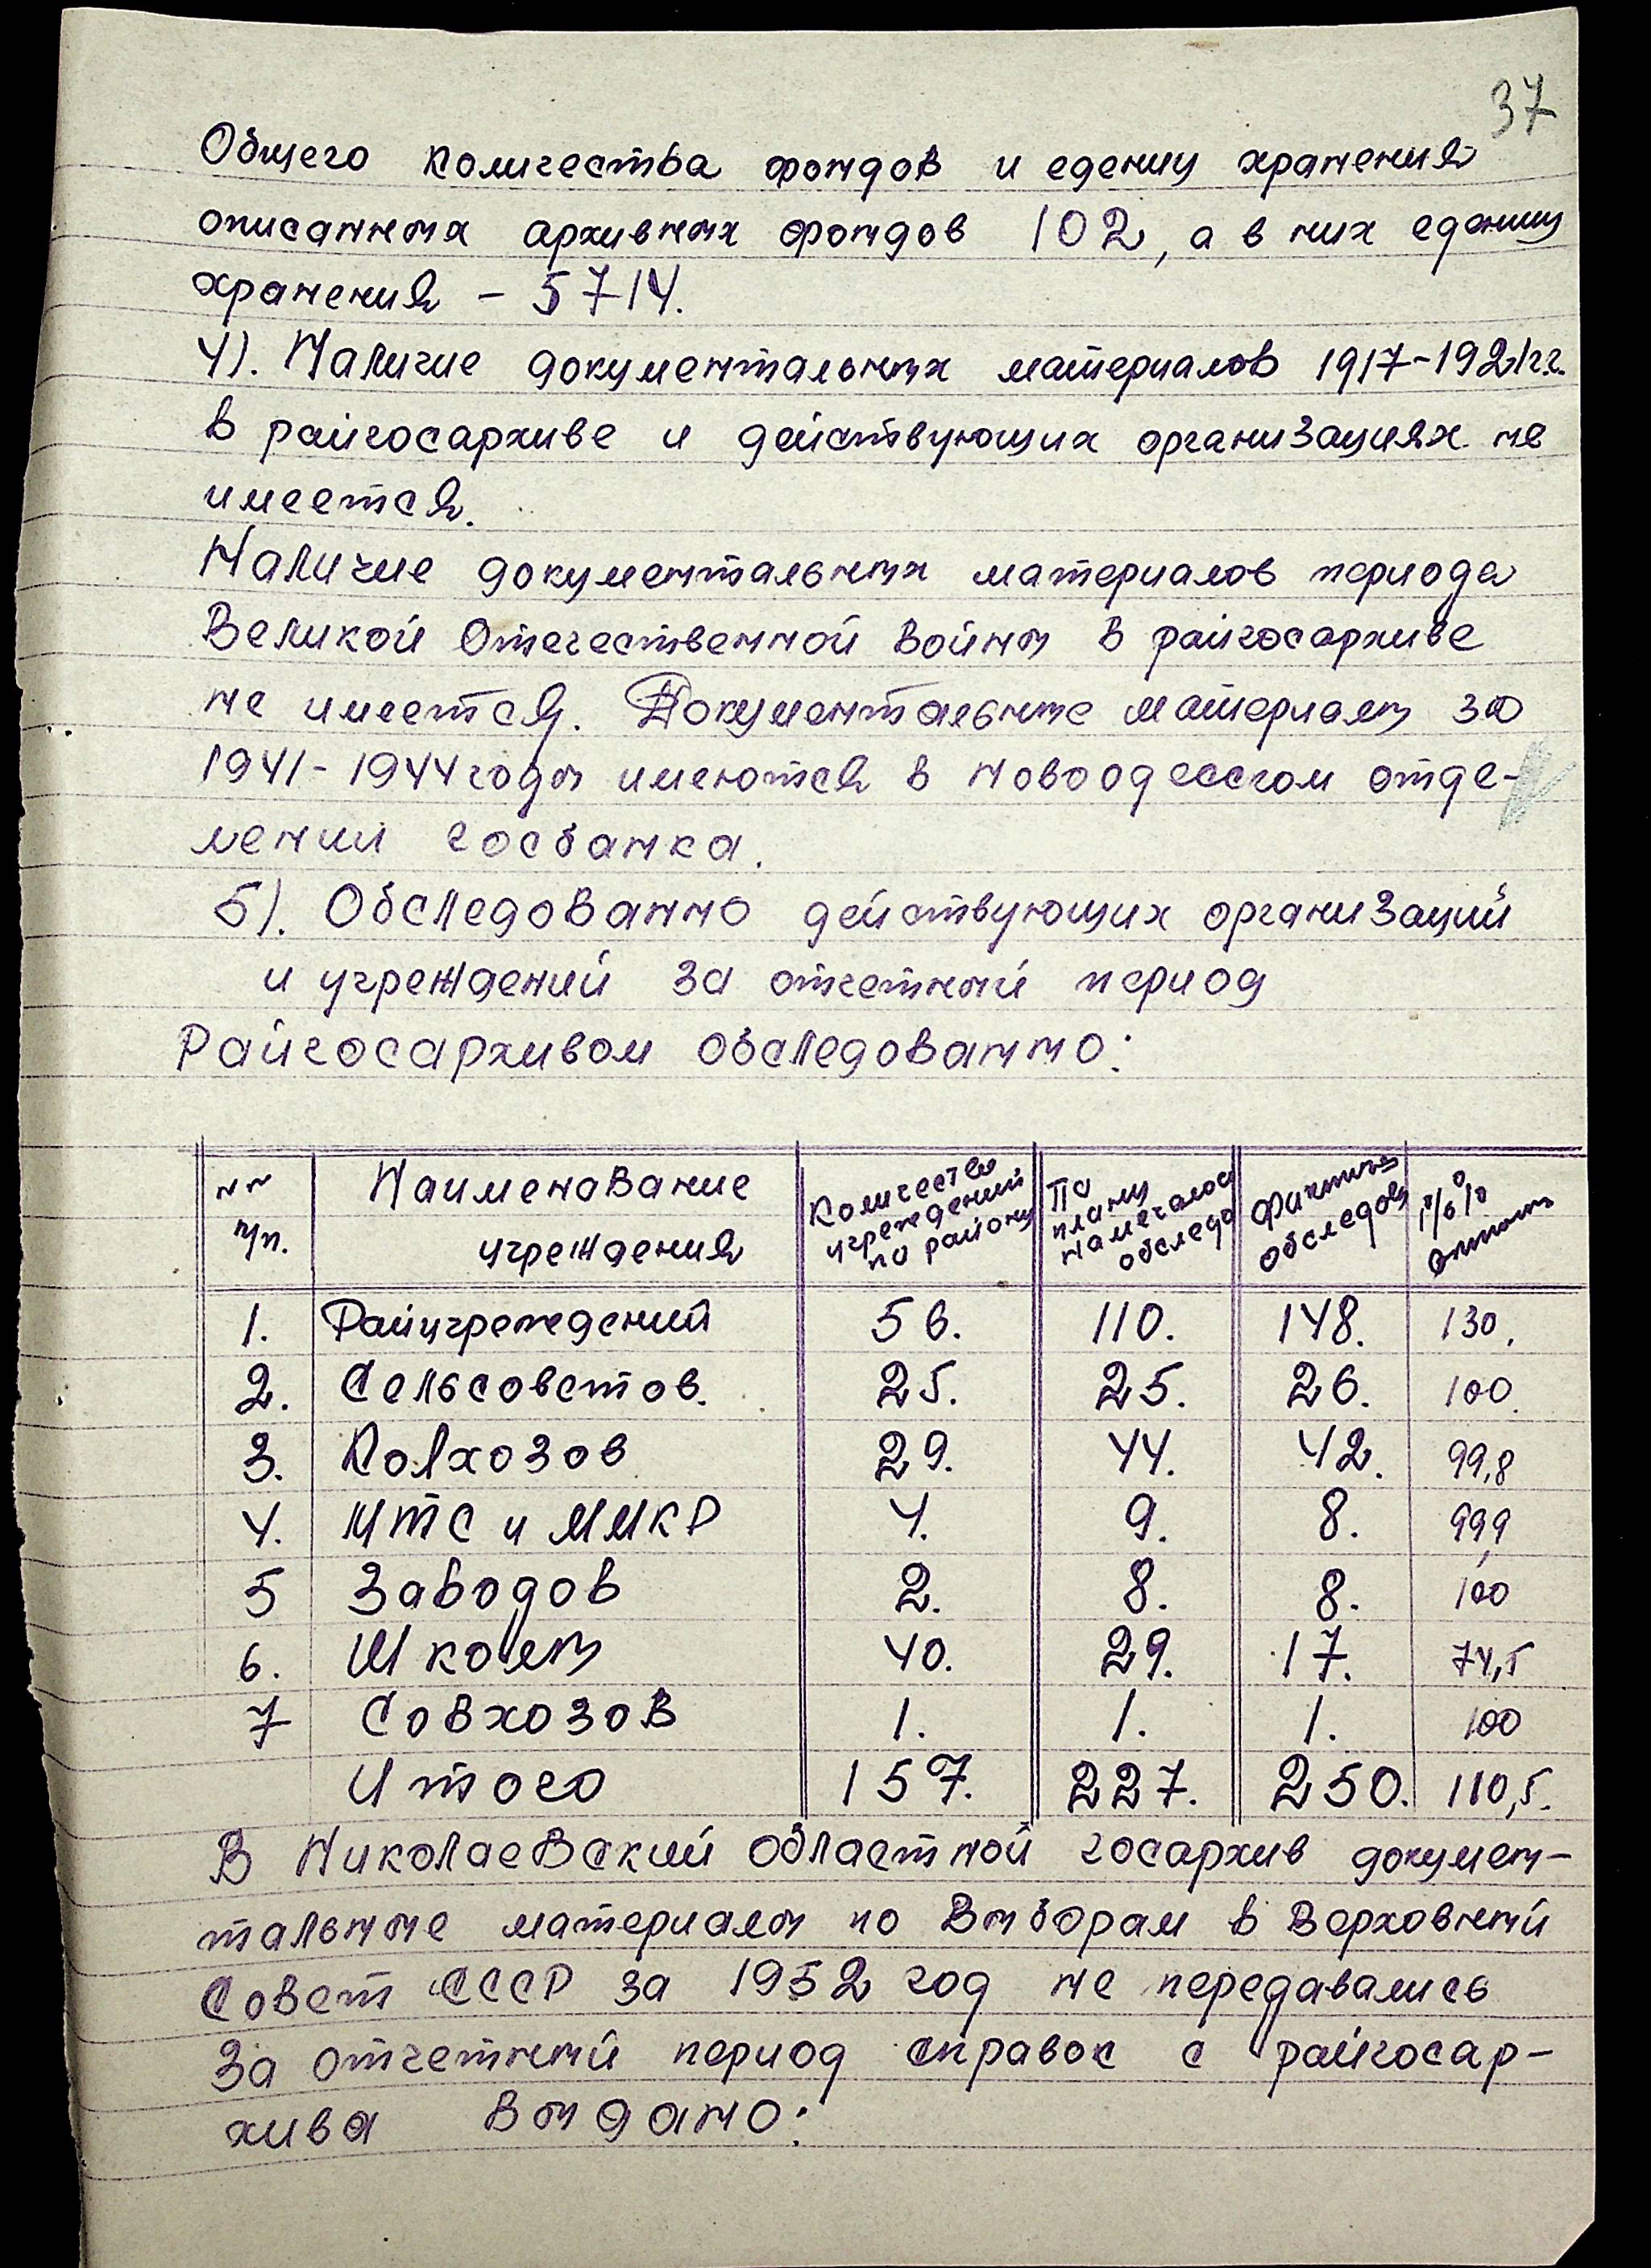 37
Общего количества фондов и едениц хранения
описанных архивных фондов 102, а в них едениц
хранения - 5714.
4). Наличие документальных материалов 1917-1921гг.
в райгосархиве и действующих организациях не
имеется.
Наличие документальных материалов периода
Великой Отечественной войны в райгосархиве
не имеется. Документальные материалы за
1941-1944 годы имеются в Новоодесском отде-
лении госбанка.
5). Обследованно действующих организаций
и учреждений за отчетный период
Райгосархивом обследованно:
№№ п/п. Наименование учреждения Количество учреждений по району По плану намечалось обследо Фактич обследов %%
1. Райучреждений 56. 110. 148. 130.
2. Сельсоветов. 25. 25. 26. 100.
3. Колхозов 29. 44. 42. 99,8
4. МТС и ММКР 4. 9. 8. 99,9
5 Заводов 2. 8. 8. 100
6. Школы 40. 29. 17. 74,5
7 Совхозов 1. 1. 1. 100
Итого 157. 227. 250. 110,5.
В Николаевский областной госархив докумен-
тальные материалы по выборам в Верховный
Совет СССР за 1952 год не передавались
За отчетный период справок с райгосар-
хива выдано: